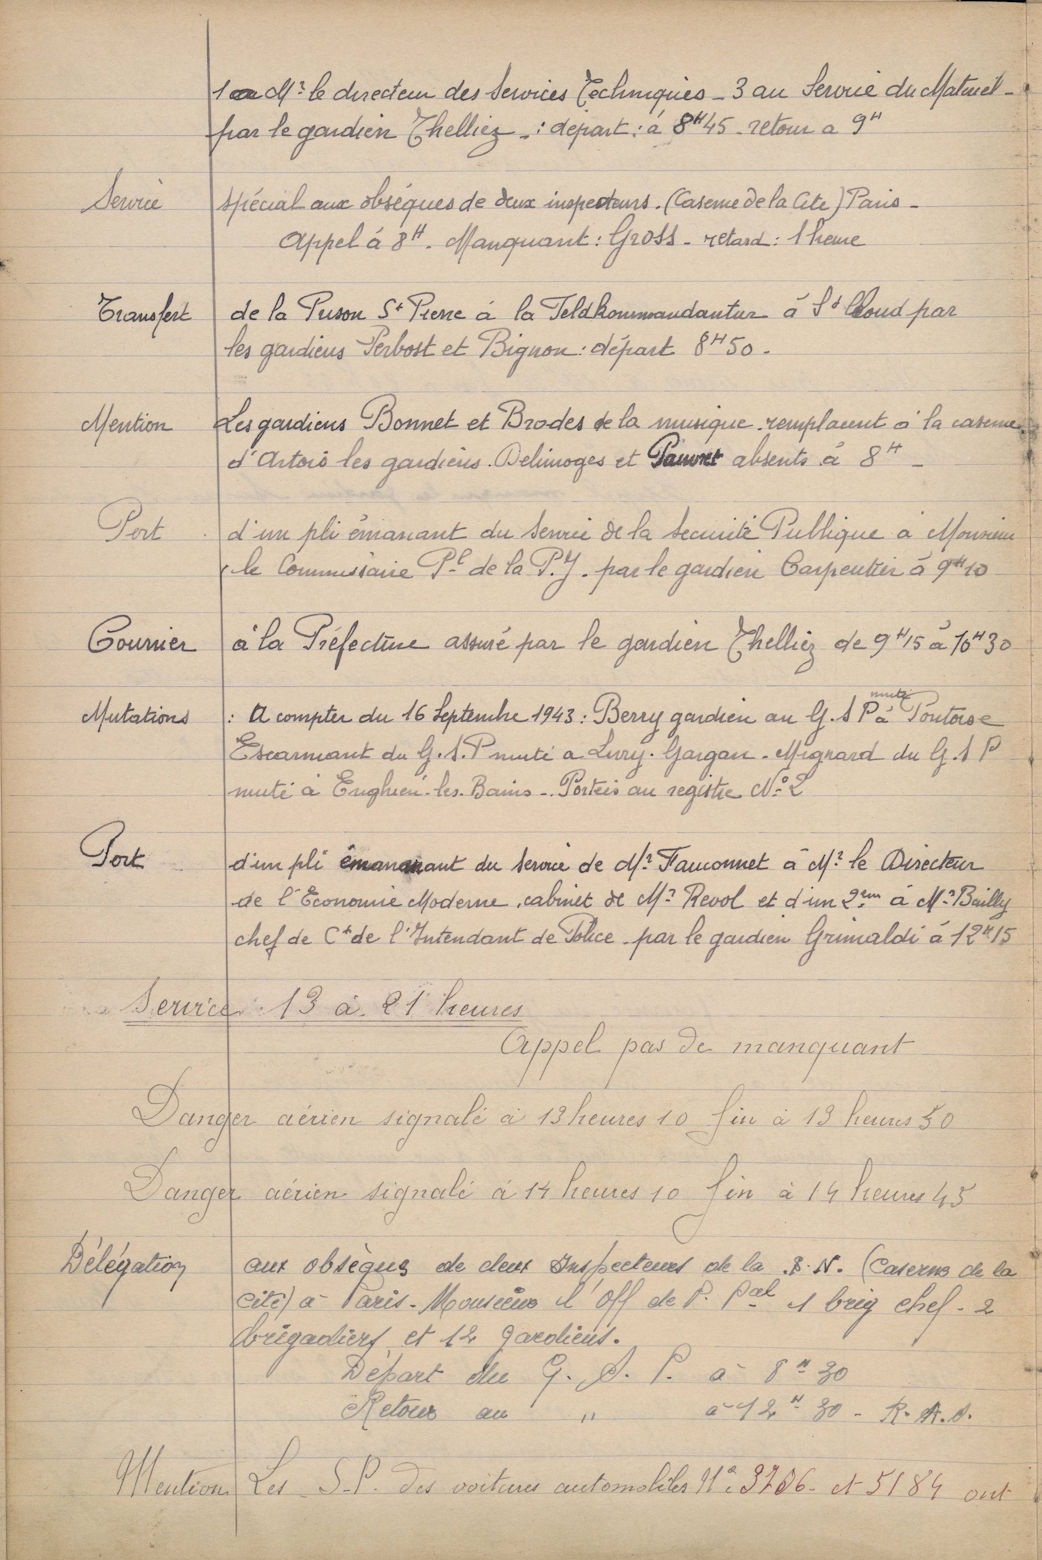 1 a Mr le directeur des Services Techniques - 3 au Service du Materiel -
par le gardien Thelliez - : départ : à 8H45 - retour a 9H
Service spécial aux obséques de deux inspecteurs. (Caserne de la Cité) Paris -
Appel à 8H. Manquant : Gross - retard : 1 heure
Transfert de la Prison St Pierre à la Feldkommandantur à St Cloud par
les gardiens Perbost et Bignon : départ 8H50 -
Mention Les gardiens Bonnet et Brodes de la musique remplacent à la caserne
d'Artois les gardiens Delimoges et Pauvret absents à 8H -
Port d'un pli émanant du Service de la Securité Publique à Monsieur
le Commissaire Pal de la P.J. par le gardien Carpentier à 9H10
Courrier à la Préfecture assuré par le gardien Thelliez de 9H15 à 10H30
Mutations : A compter du 16 Septembre 1943 : Berry gardien au G.S P muté à Pontoise
Escarmant du G.S.P muté a Livry-Gargan - Mignard du G.S P
muté à Enghien-les-Bains - Portés au registre No 2
Port d'un pli émananant du Service de Mr Fauconnet à Mr le Directeur
de l'Economie Moderne, cabinet de Mr Revol et d'un 2em à Mr Bailly
chef de Ct de l'Intendant de Police par le gardien Grimaldi à 12H15
Service 13 à 21 heures
Appel pas de manquant
Danger aérien signalé à 13 heures 10 fin à 13 heures 50
Danger aérien signalé à 14 heures 10 fin à 14 heures 45
Délégation aux obsèques de deux Inspecteurs de la P.N. (Caserne de la
Cité) à Paris - Monsieur l'Off de P. Pal 1 brig chef - 2
brigadiers et 12 gardiens.
Départ du G. S. P. à 8H30
Retour au " à 12H30 - R.A.S.
Mention Les S.P. des voitures automobiles No 3786 - et 5184 ont